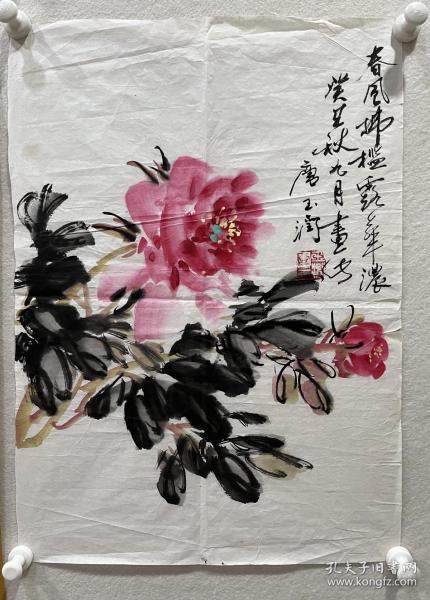 春风拂槛露华浓
癸丑秋九月画于
唐玉润
孔夫子旧书网
www.kongfz.com